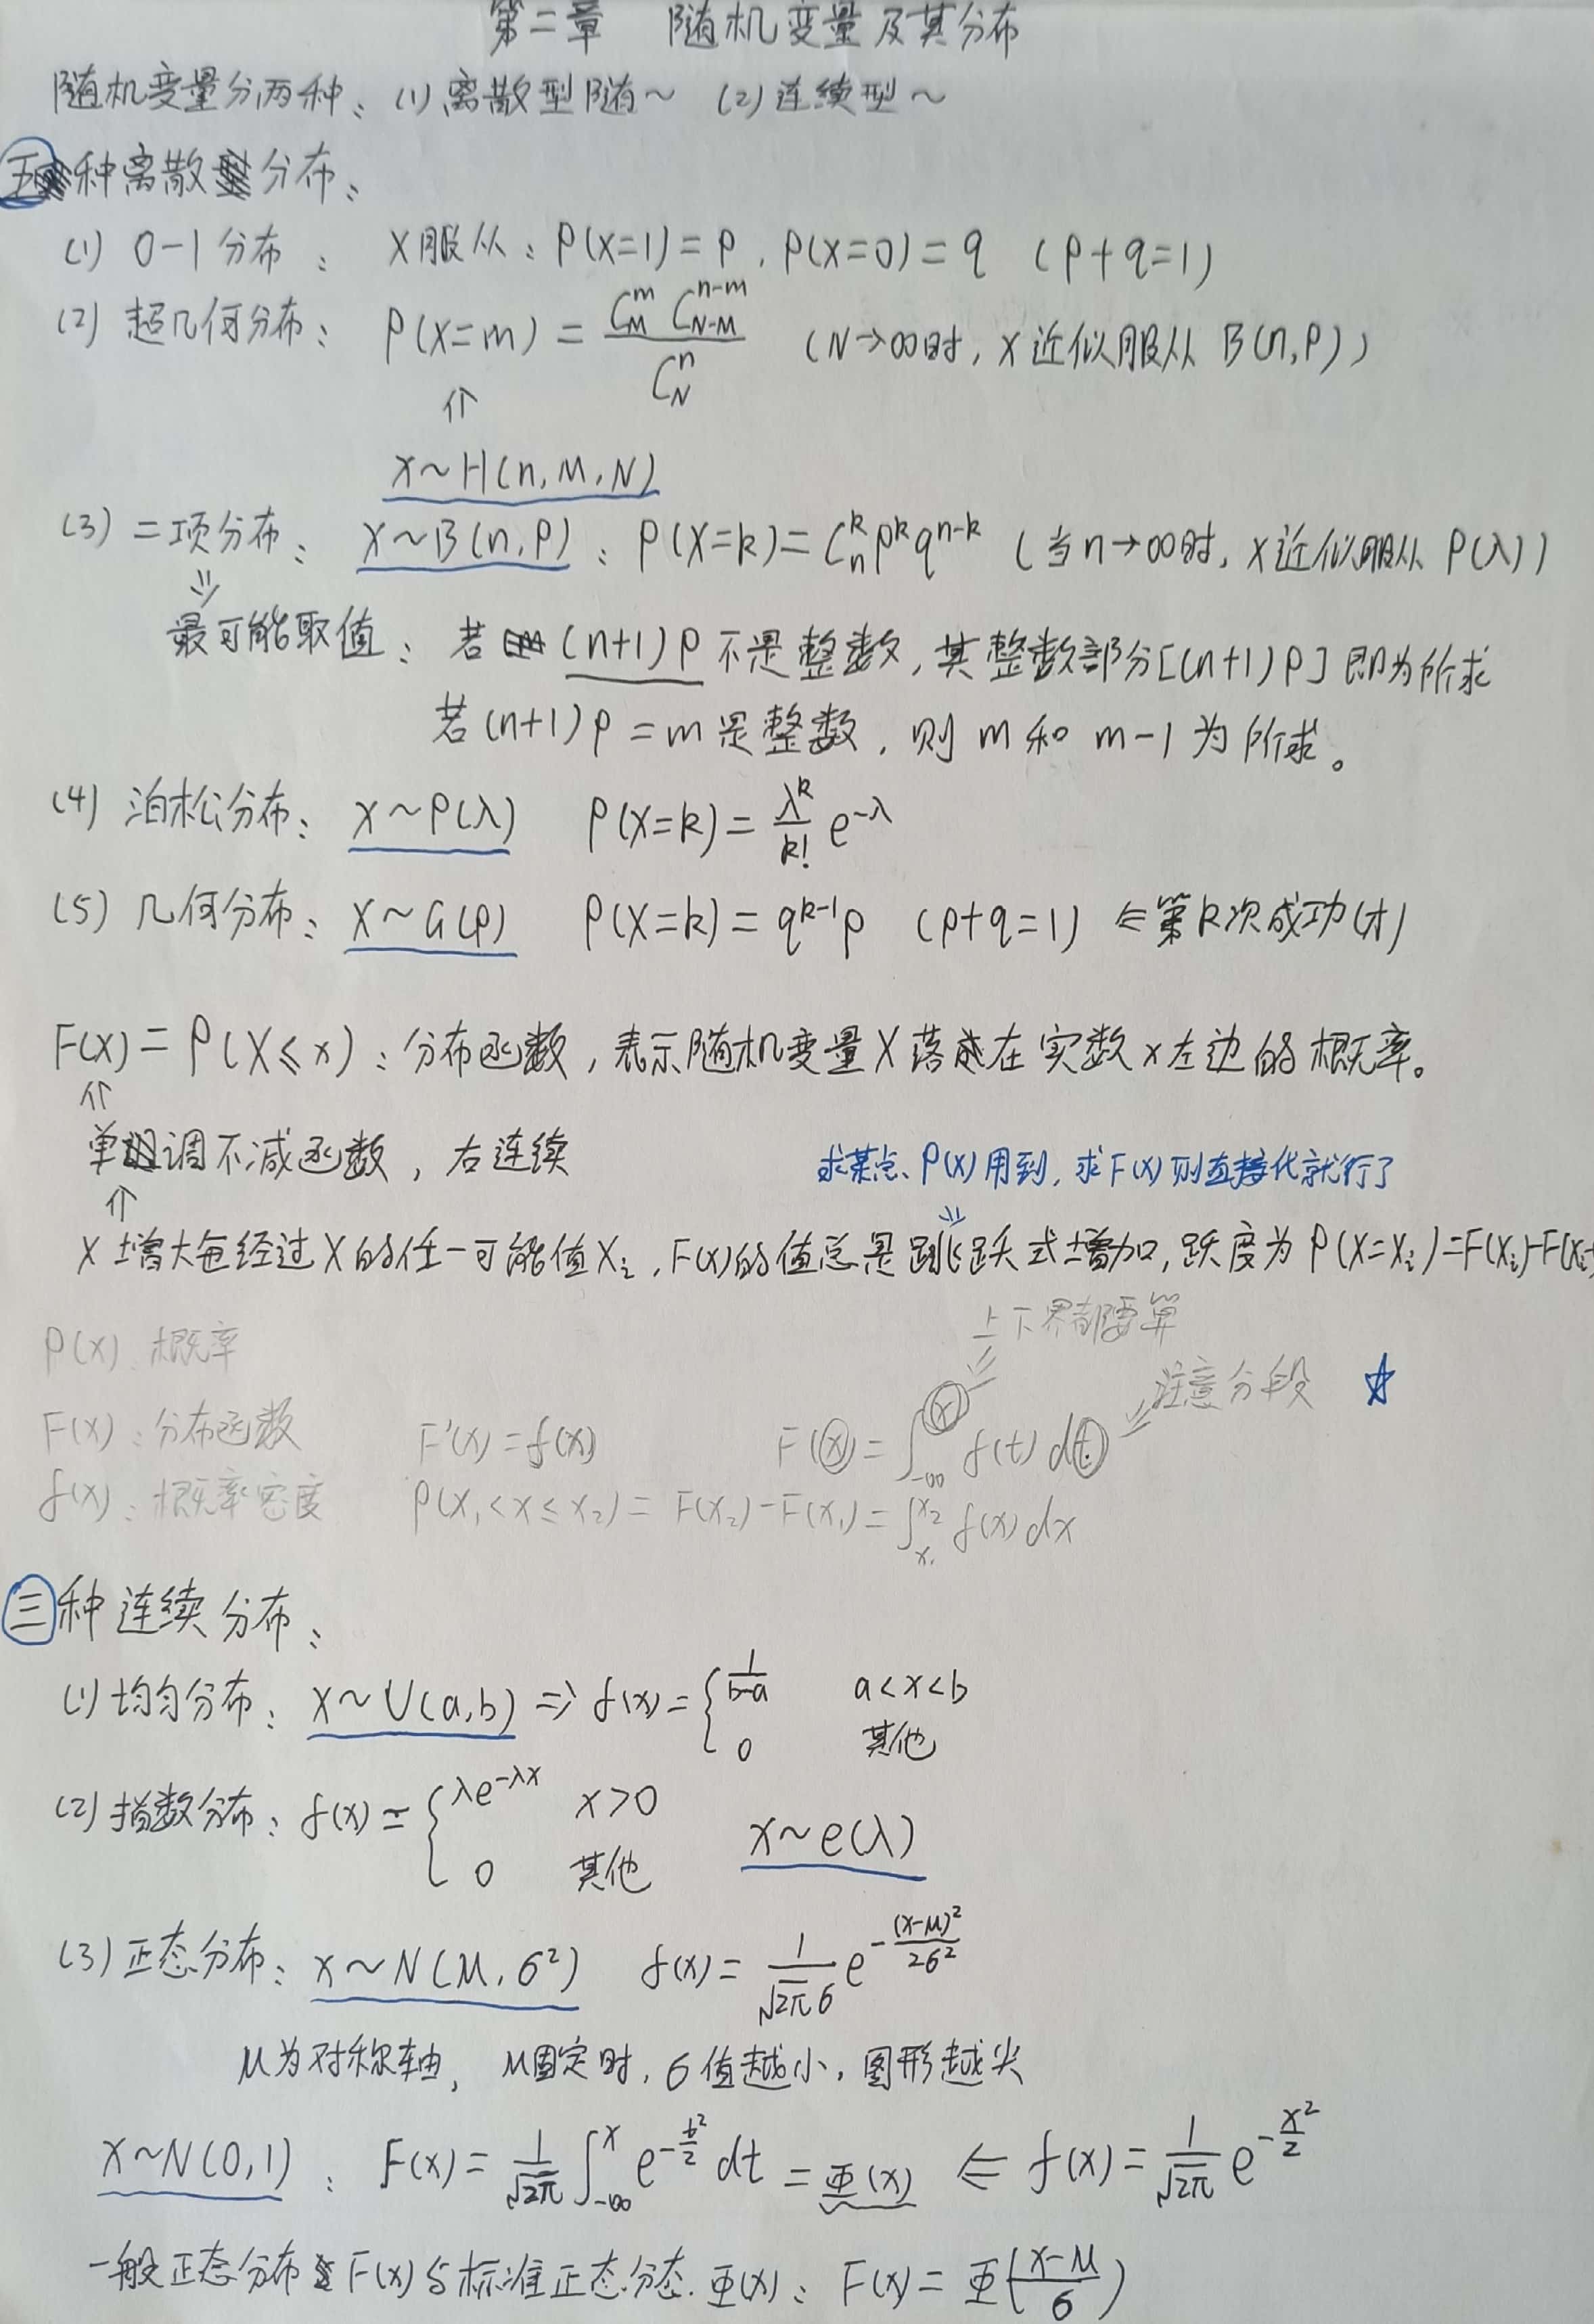 第二章 随机变量及其分布
随机变量分两种：(1) 离散型随~ (2) 连续型~
五种离散型分布：
(1) 0-1分布： X服从：P(X=1)=P，P(X=0)=q (P+q=1)
(2) 超几何分布： P(X=m) = \frac{C_M^m C_{N-M}^{n-m}}{C_N^n} (N→∞时，X近似服从 B(n,P))
⇑
X~H(n,M,N)
(3) 二项分布： X~B(n,P)：P(X=k)=C_n^k P^k q^{n-k} (当n→∞时，X近似服从 P(λ))
⇓
最可能取值：若(n+1)P 不是整数，其整数部分[(n+1)P]即为所求
若(n+1)P=m是整数，则m和m-1为所求。
(4) 泊松分布： X~P(λ) P(X=k)=\frac{λ^k}{k!} e^{-λ}
(5) 几何分布： X~G(P) P(X=k)=q^{k-1}P (P+q=1) ⇐第k次成功(才)
F(X)=P(X≤x)：分布函数，表示随机变量X落在实数x左边的概率。
⇑
单调不减函数，右连续
求某点、P(X)用到，求F(X)则直接代就行了
⇑
X增大每经过X的任一可能值X_i，F(X)的值总是跳跃式增加，跃度为P(X=X_i)=F(X_i)-F(X_i-
上下界都要算
P(X)：概率
注意分段 ☆
F(X)：分布函数 F'(X)=f(X) F(X)=∫_{-∞}^{X} f(t)dt
f(X)：概率密度 P(X_1<X≤X_2)=F(X_2)-F(X_1)=∫_{X_1}^{X_2} f(x)dx
三种连续分布：
(1) 均匀分布： X~U(a,b) ⇒ f(x)={ \frac{1}{b-a} a<x<b
0 其他
(2) 指数分布： f(x)={ λe^{-λx} x>0
X~e(λ)
0 其他
(3) 正态分布： X~N(μ,σ²) f(x)=\frac{1}{\sqrt{2π}σ} e^{-\frac{(x-μ)^2}{2σ^2}}
μ为对称轴，μ固定时，σ值越小，图形越尖
X~N(0,1)： F(x)=\frac{1}{\sqrt{2π}} ∫_{-∞}^{x} e^{-\frac{t^2}{2}} dt = Φ(x) ⇐ f(x)=\frac{1}{\sqrt{2π}} e^{-\frac{x^2}{2}}
一般正态分布F(x)与标准正态分态.Φ(x)：F(x)=Φ(\frac{x-μ}{σ})